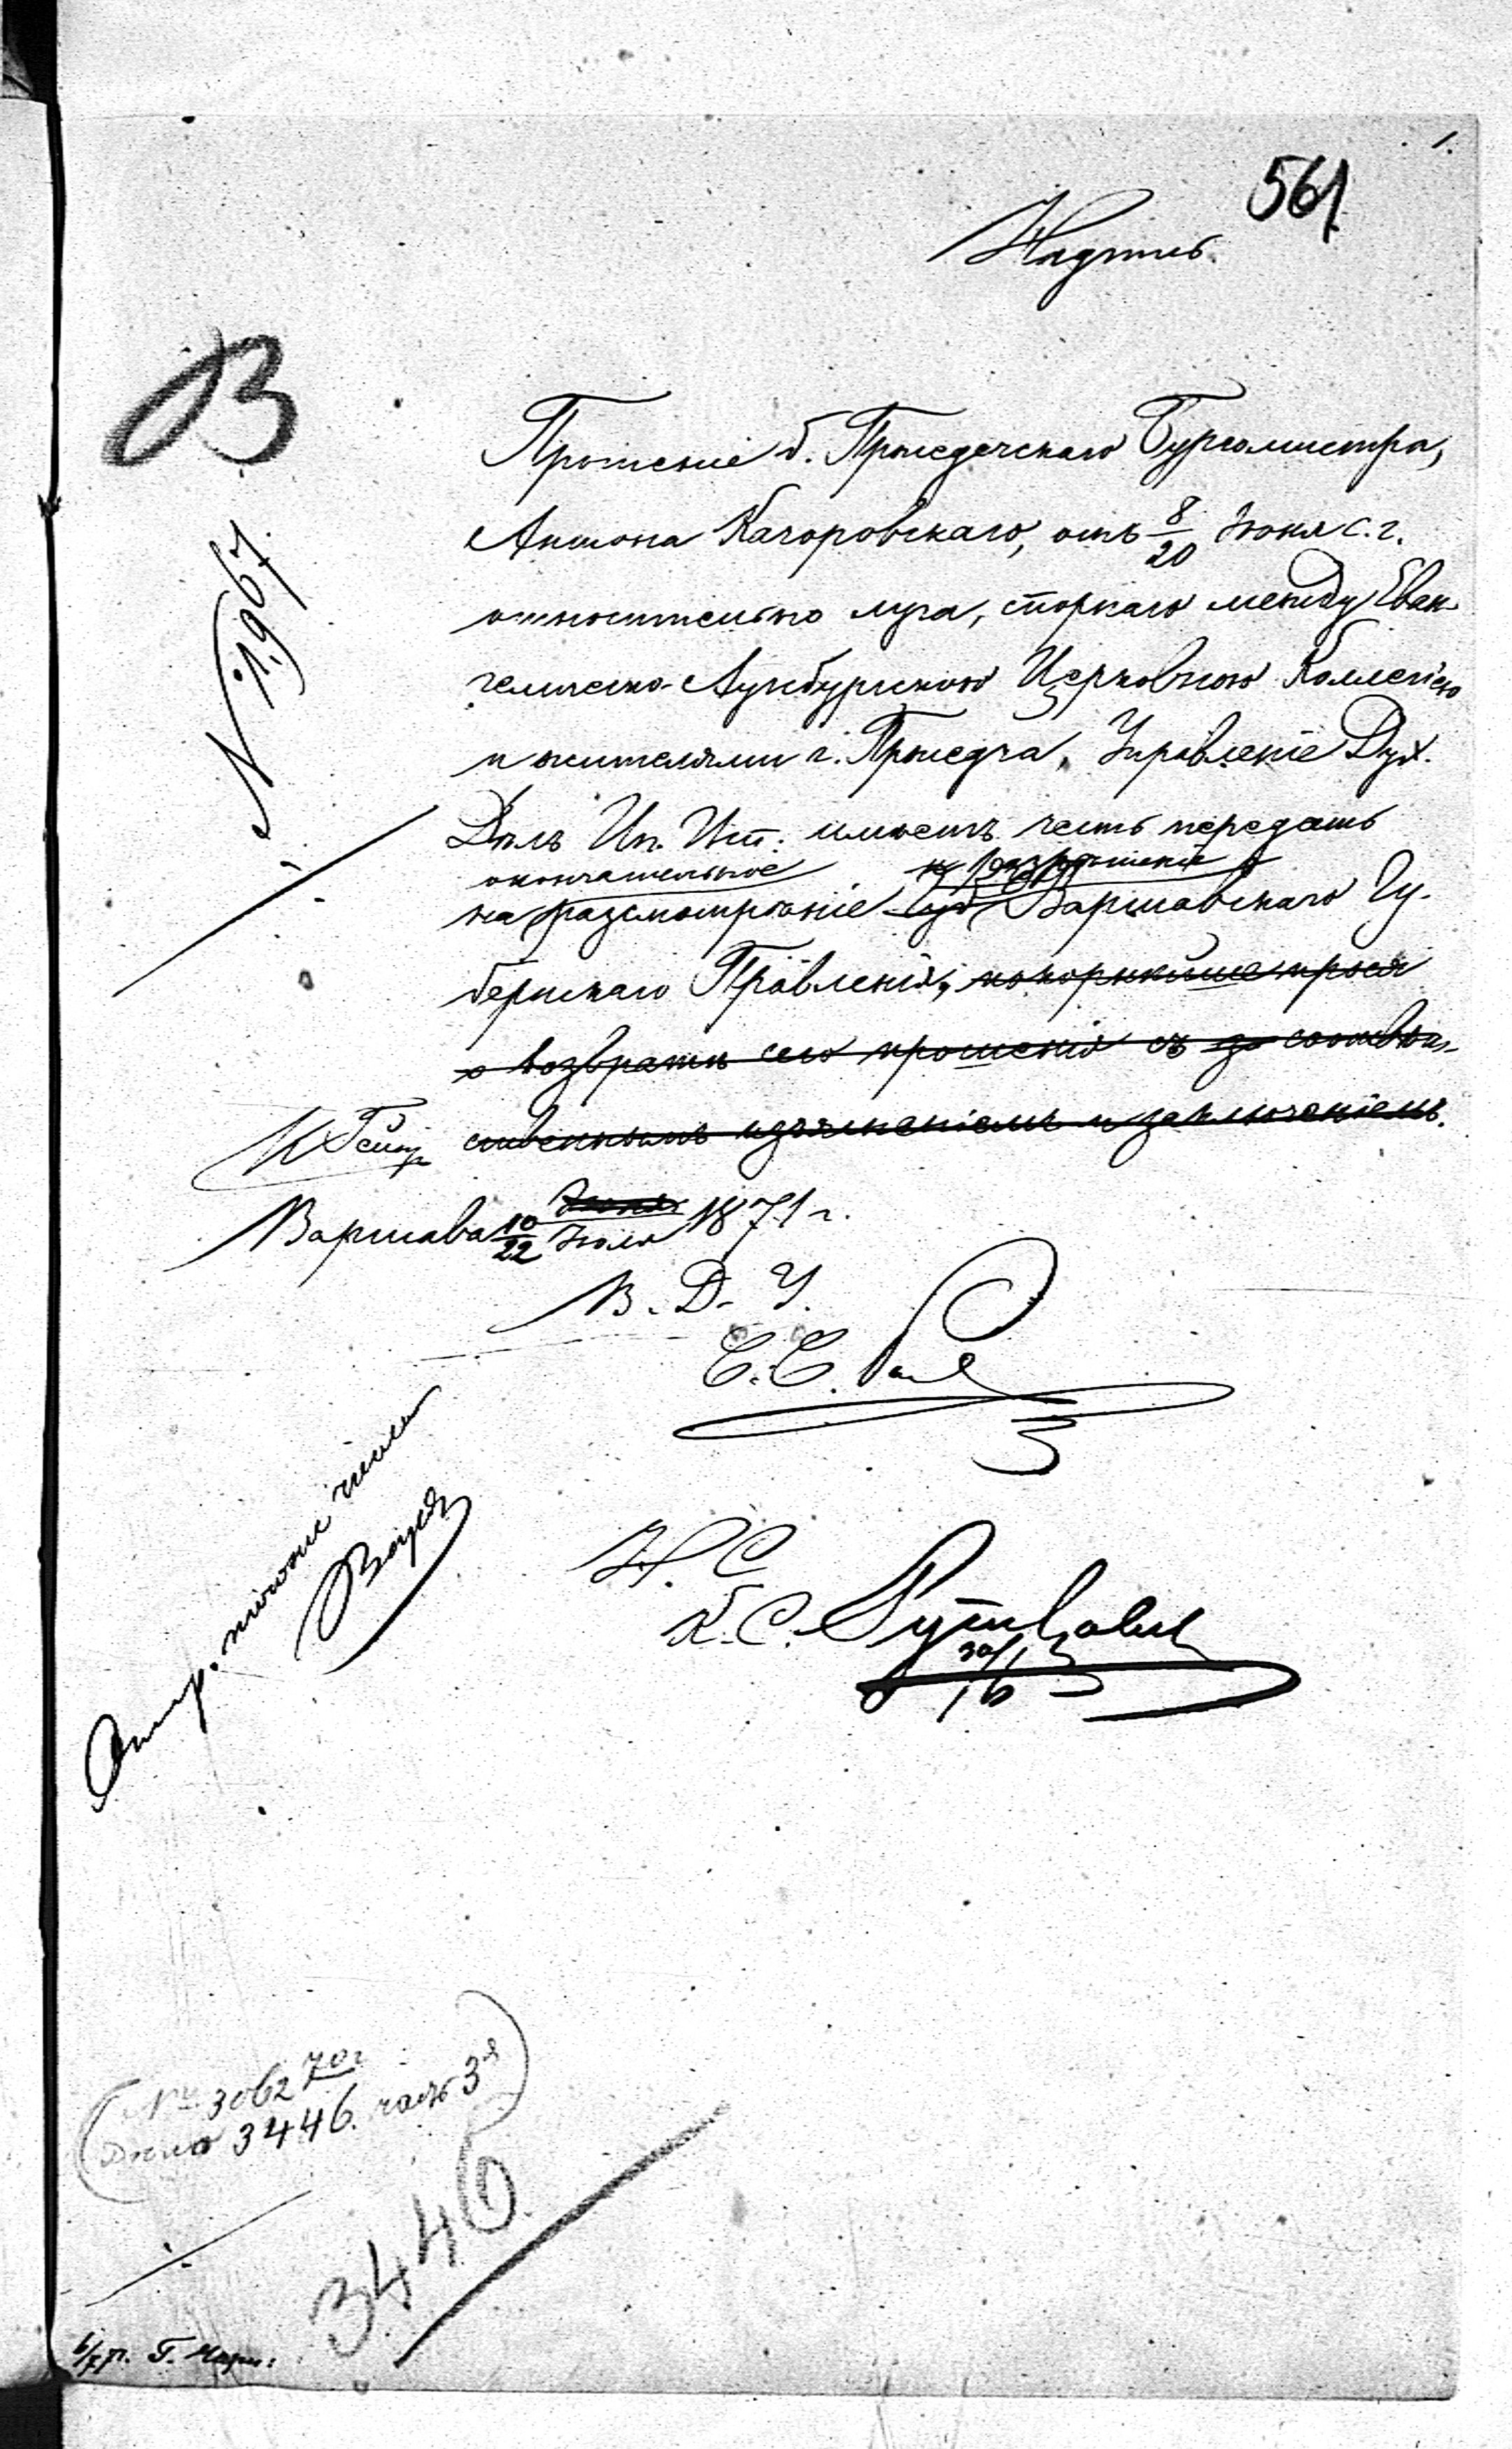 1.
561.
Надпись.
В
Прошеніе б. Пршедечскаго Бургомистра,
Антона Качоровскаго, отъ 8/20 Іюня с. г.
относительно луга, спорнаго между Еван-
гелическо-Аугсбургскою Церковною Коллегіею
и жителями г. Пршедеча, Управленіе Дух.
Дѣлъ Ин. Исп. имѣетъ честь передать
окончательное
на разсмотрѣніе Варшавскаго Гу-
бернскаго Правленія, покорнѣйше прося
о возвратѣ сего прошенія съ соотвѣт-
ственнымъ изъясненіемъ и заключеніемъ.
Варшава 10/22 Іюня Іюля 1871 г.
В. Д. У.
С. С.
Н. С.
К. С.
30/16
N 1967.
Отпр. числа
(№ 3062 70 г.
Дѣло 3446. часть 3я)
3446.